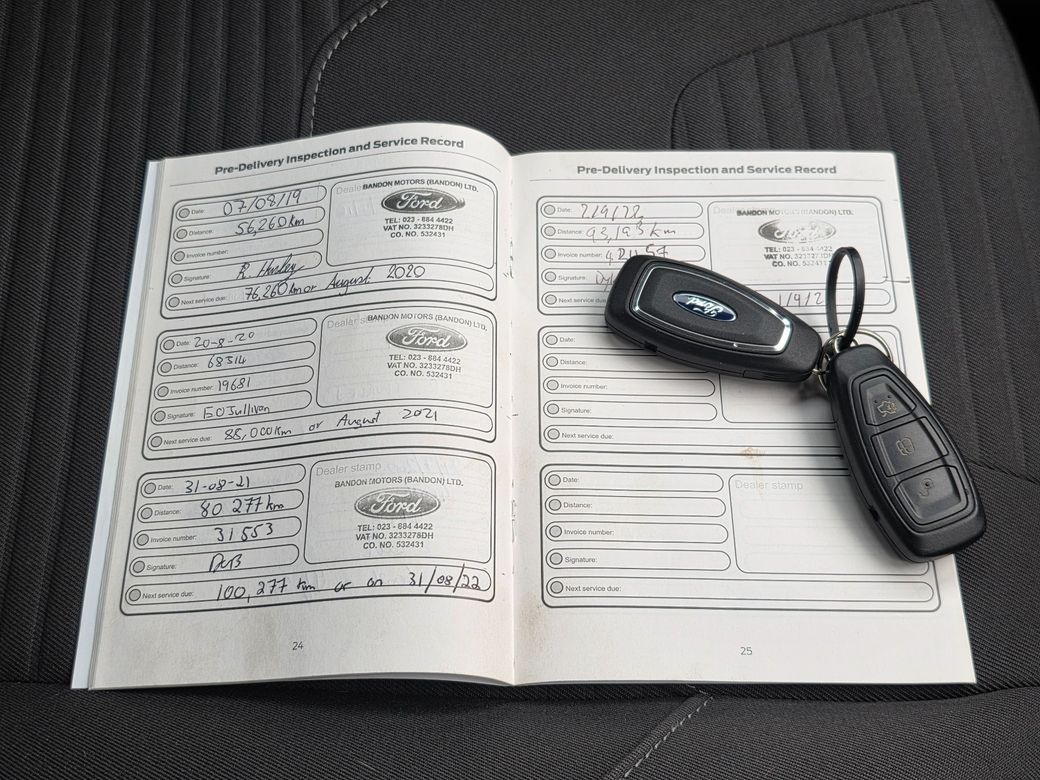 Pre-Delivery Inspection and Service Record
Date: 07/08/19
Distance: 56,260km
Invoice number:
Signature: R. Hurley
Next service due: 76,260km or August 2020
Dealer
BANDON MOTORS (BANDON) LTD.
Ford
TEL: 023 - 884 4422
VAT NO. 3233278DH
CO. NO. 532431
Date: 20-8-20
Distance: 68314
Invoice number: 19681
Signature: GO Sullivan
Next service due: 88,000km or August 2021
Dealer
BANDON MOTORS (BANDON) LTD.
Ford
TEL: 023 - 884 4422
VAT NO. 3233278DH
CO. NO. 532431
Date: 31-08-21
Distance: 80 277km
Invoice number: 31553
Signature:
Next service due: 100,277 km or on 31/08/22
Dealer stamp
BANDON MOTORS (BANDON) LTD.
Ford
TEL: 023 - 884 4422
VAT NO. 3233278DH
CO. NO. 532431
24
Pre-Delivery Inspection and Service Record
Date: 2/9/22
Distance: 93,193 km
Invoice number:
Signature:
Next service due:
BANDON MOTORS (BANDON) LTD.
Ford
CO. NO. 53243
Date:
Distance:
Invoice number:
Signature:
Next service due:
Date:
Distance:
Invoice number:
Signature:
Next service due:
Dealer stamp
25
Ford